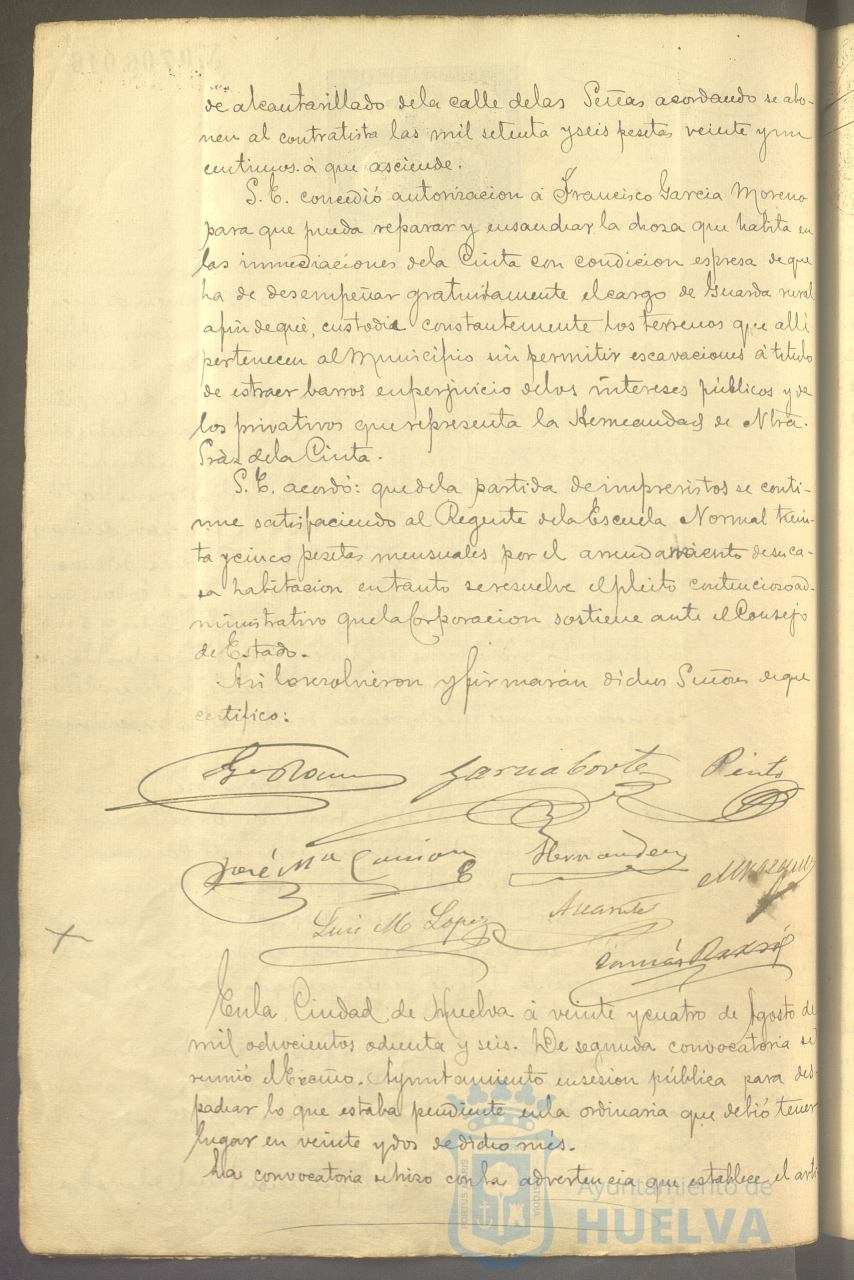 de alcantarillado dela calle delas Señas acordando se abo-
nen al contratista las mil setenta y seis pesetas veinte y un
centimos á que asciende.
S. E. concedió autorizacion á Francisco Garcia Moreno
para que pueda reparar y ensanchar la choza que habita en
las inmediaciones dela Cinta con condicion espresa de que
ha de desempeñar gratuitamente el cargo de Guarda rural
afin de que, custodie constantemente los terrenos que alli
pertenecen al Municipio sin permitir escavaciones á titulo
de estraer barros en perjuicio delos intereses públicos y de
los privativos que representa la Hermandad de Ntra.
Sra. dela Cinta.
S. E. acordó: que dela partida de imprevistos se conti-
nue satisfaciendo al Regente dela Escuela Normal trein-
ta y cinco pesetas mensuales por el arrendamiento de su ca-
sa habitacion en tanto se resuelve el pleito contencioso ad-
ministrativo que la Corporacion sostiene ante el Consejo
de Estado.
Asi lo resolvieron y firmarán dichos Señores de que
certifico:
Garcia Cortes Pinto
José Ma Hernandez
Luis M Lopez
Tomás
En la Ciudad de Huelva á veinte y cuatro de Agosto de
mil ochocientos ochenta y seis. De segunda convocatoria se
reunió el Excmo. Ayuntamiento en sesion pública para des-
pachar lo que estaba pendiente en la ordinaria que debió tener
lugar en veinte y dos de dicho mes.
La convocatoria se hizo con la advertencia que establece el arti
Ayuntamiento de
HUELVA